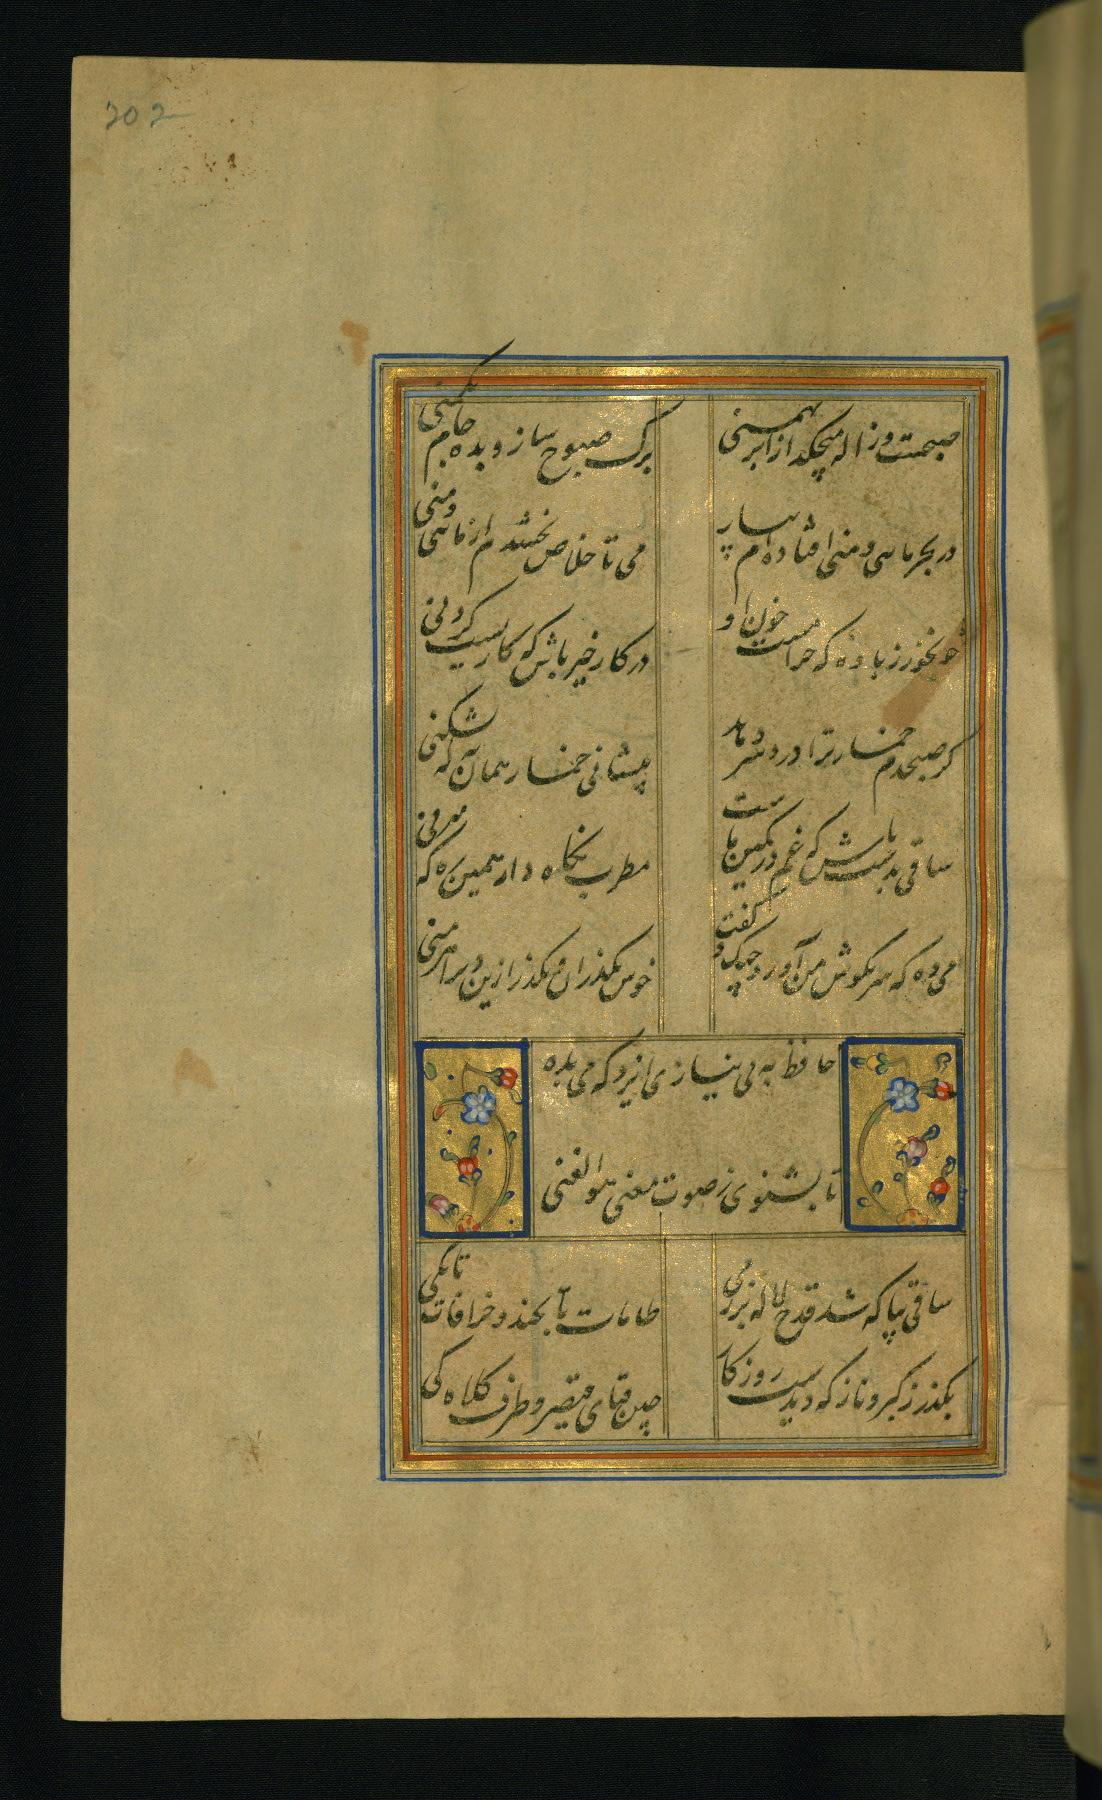 202
صبحست و ژاله میچکد از ابر بهمنی
برک صبوح ساز و بده جام یکمنی
در بحر مایی و منی افتاده‌ام بیار
می تا خلاص بخشدم از مایی و منی
خون پیاله خور که حلالست خون او
در کار خیر باش که کاریست کردنی
کر صبحدم خمار ترا درد سر دهد
پیشانی خمار همان به که شکنی
ساقی بدست باش که غم در کمین ماست
مطرب نکاه دار همین ره که میزنی
می ده که سر بکوش من آورد چنک و گفت
خوش بگذران و بگذر ازین دیر اهرمنی
حافظ به بی نیازی ایزد که می بده
تا بشنوی ز صوت مغنی هو الغنی
ساقی بیا که شد قدح لاله پر ز می
طامات تا بچند و خرافات تا بکی
بگذر ز کبر و ناز که دیدست روزکار
چین قبای قیصر و طرف کلاه کی